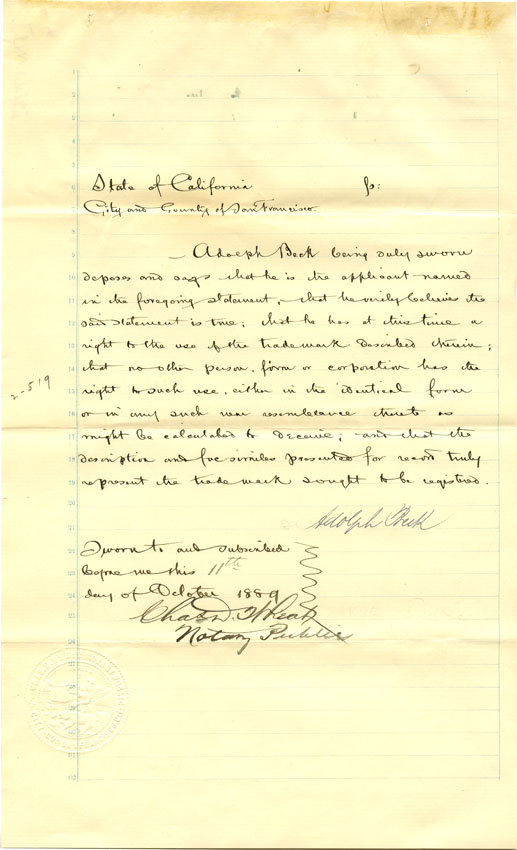 State of California ss:
City and County of San Francisco.
Adolph Beck being duly sworn
deposes and says that he is the applicant named
in the foregoing statement; that he verily believes the
said statement is true; that he has at this time a
right to the use of the trademark described therein;
that no other person, firm or corporation has the
right to such use, either in the identical form
or in any such near resemblance thereto as
might be calculated to deceive; and that the
description and facsimiles presented for record truly
represent the trade mark sought to be registered.
2-519
Adolph Beck
Sworn to and subscribed
before me this 11th
day of October 1889
Chas. D. Wheat
Notary Public